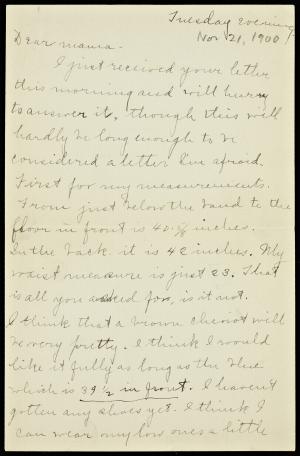 Tuesday evening
Nov 21, 1900
Dear mama-
I just received your letter
this morning and will hurry
to answer it, though this will
hardly be long enough to be
considered a letter I'm afraid.
First for my measurements.
From just below the band to the
floor in front is 40 ½ inches.
In the back it is 42 inches. My
waist measure is just 23. That
is all you asked for, is it not.
I think that a brown cheviot will
be very pretty. I think I would
like it fully as long as the blue
which is 39 ½ in front. I haven't
gotten any shoes yet. I think I
can wear my low ones a little